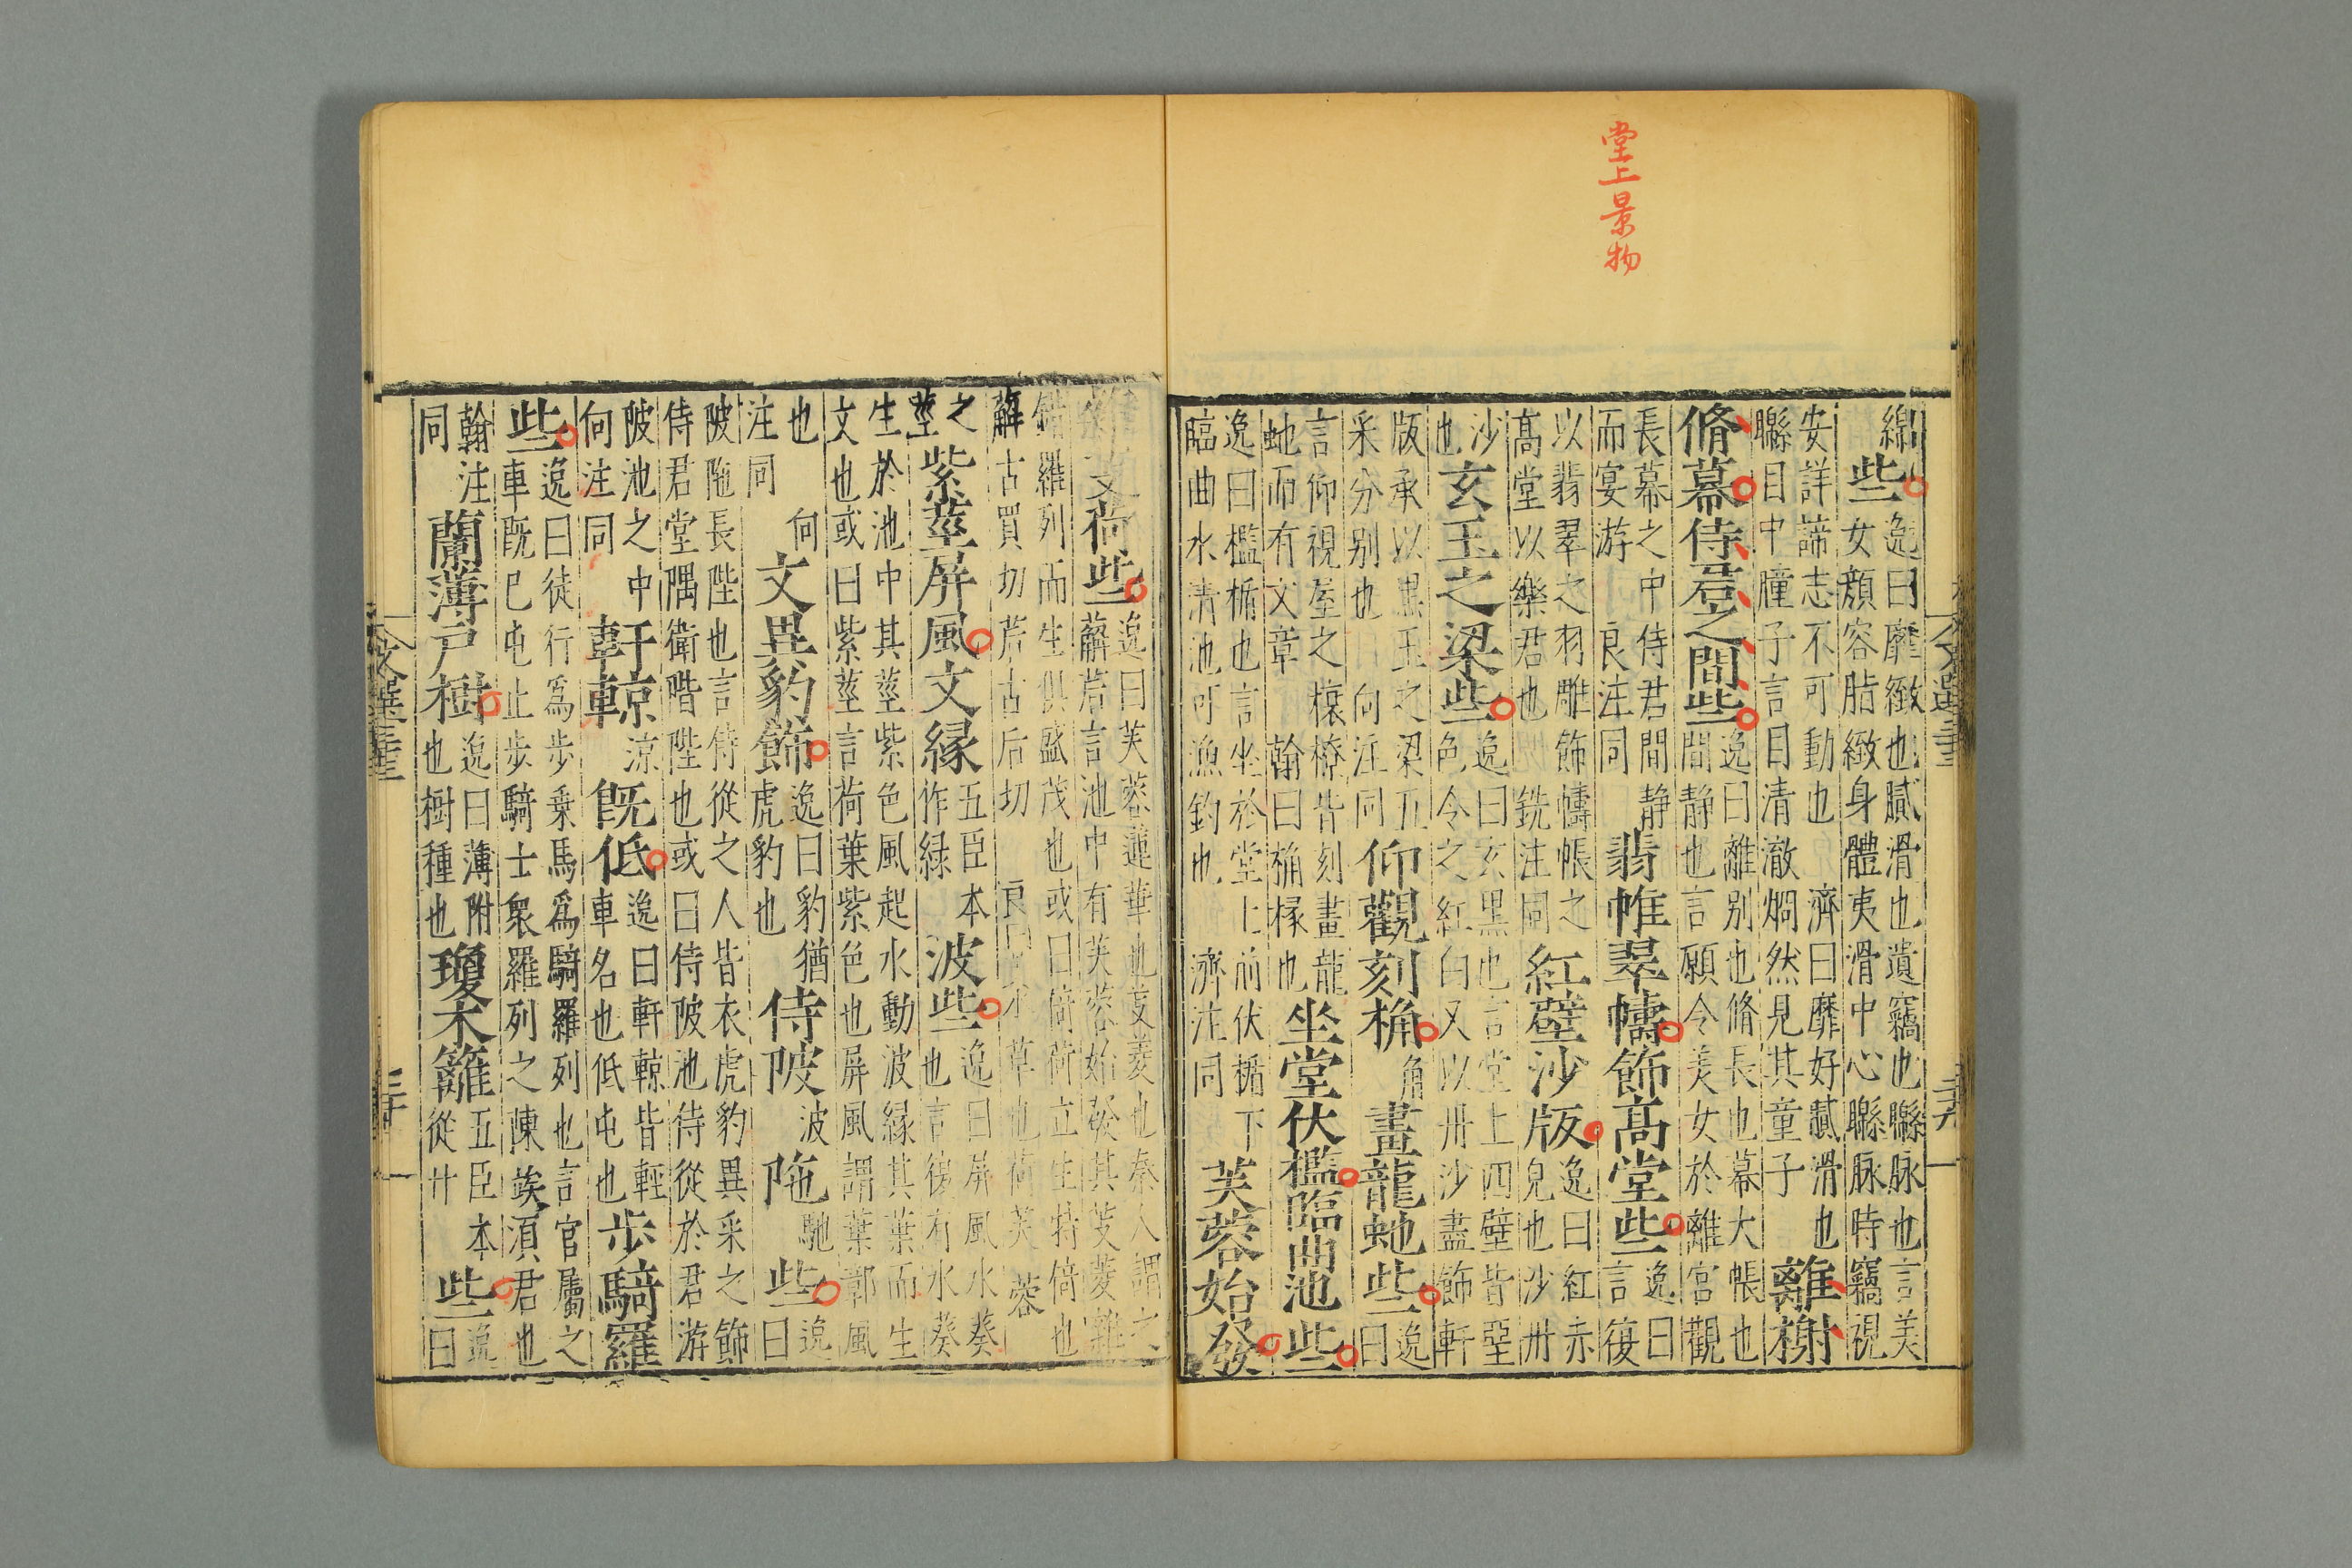 堂上景物
綿些逸曰靡緻也膩滑也遺竊也聯脉也言美女顏容脂緻身體夷滑中心聯脉時竊視
安詳諦志不可動也 濟曰靡好膩滑也聯目中瞳子言目清澈烱然見其童子離榭
脩幕侍君之間些逸曰離别也脩長也幕大帳也間静也言願令美女於離宮觀
長幕之中侍君間静而宴游 良注同翡帷翠幬飾髙堂些逸曰言復
以翡翠之羽雕飾幬帳之髙堂以樂君也 銑注同紅壁沙版逸曰紅赤皃也沙丹
沙也玄玉之梁些逸曰玄黑也言堂上四壁皆堊色令之紅白又以丹沙盡飾軒
版承以黒玉之梁五采分别也 向注同仰觀刻桷角畫龍虵些逸曰
言仰視屋之榱橑皆刻畫龍虵而有文章 翰曰桷椽也坐堂伏檻臨曲池些
逸曰檻楯也言坐於堂上前伏楯下臨曲水清池可漁釣也 濟注同芙蓉始發
芰荷些逸曰芙蓉蓮華也芰菱也秦人謂之薢茩言池中有芙蓉始發其芰菱雜
錯羅列而生俱盛茂也或曰倚荷立生特倚也薢古買切茩古后切 良曰水草也荷芙蓉
之莖紫莖屏風文縁五臣本作緑波些逸曰屏風水葵也言復有水葵
生於池中其莖紫色風起水動波縁其葉而生文也或曰紫莖言荷葉紫色也屏風謂葉鄣風
也 向注同文異豹飾逸曰豹猶虎豹也侍陂波陁馳些逸曰
陂陁長陛也言侍從之人皆衣虎豹異采之飾侍君堂隅衛階陛也或曰侍陂池侍從於君游
陂池之中向注同軒輬凉既低逸曰軒輬皆輕車名也低屯也步騎羅
些逸曰徒行爲步乗馬爲騎羅列也言官屬之車既巳屯止步騎士衆羅列之陳竢湏君也
翰注同蘭薄戸樹逸曰薄附也樹種也瓊木籬五臣本從廾些逸曰